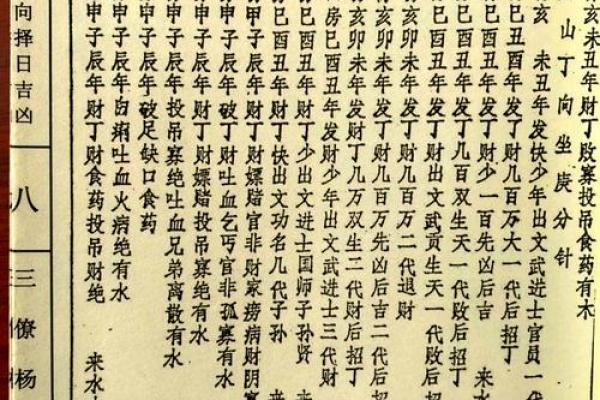 亥未丑年财丁败寡投吊食药有木
山丁向坐庚分针
亥 未丑年发快少年出文武进士官员一代
巳丑酉年发丁财几百万大一代后招丁
巳酉丑年发丁财少一百先凶后吉 来水
巳酉丑年发丁几百双生天一代败后招丁
巳酉丑年发丁财出文武贡生天一代败后
亥卯未年发丁财几百万二代退财
亥卯未年发丁财几百万先凶后吉二代后招
亥卯未年发财丁几万双生二代财后招丁
房巳酉丑年发财少年出文武进士三代财
巳酉丑年财丁少出文进士国师子孙贤
巳酉丑年财丁快出文功名几代子孙 来
甲子辰年财丁财嫖赌官非财家痨病财阴寡
申子辰年破丁财吐血乞丐官非孤寡有水
申子辰年财丁财嫖赌投吊寡绝有水
申子辰年投吊寡绝吐血兄弟离散有水
申子辰年破足缺口食药
申子辰年白痢吐血火病绝有水
申子辰年财丁财食药投吊财绝 来水
向择日吉凶
八
三僚杨